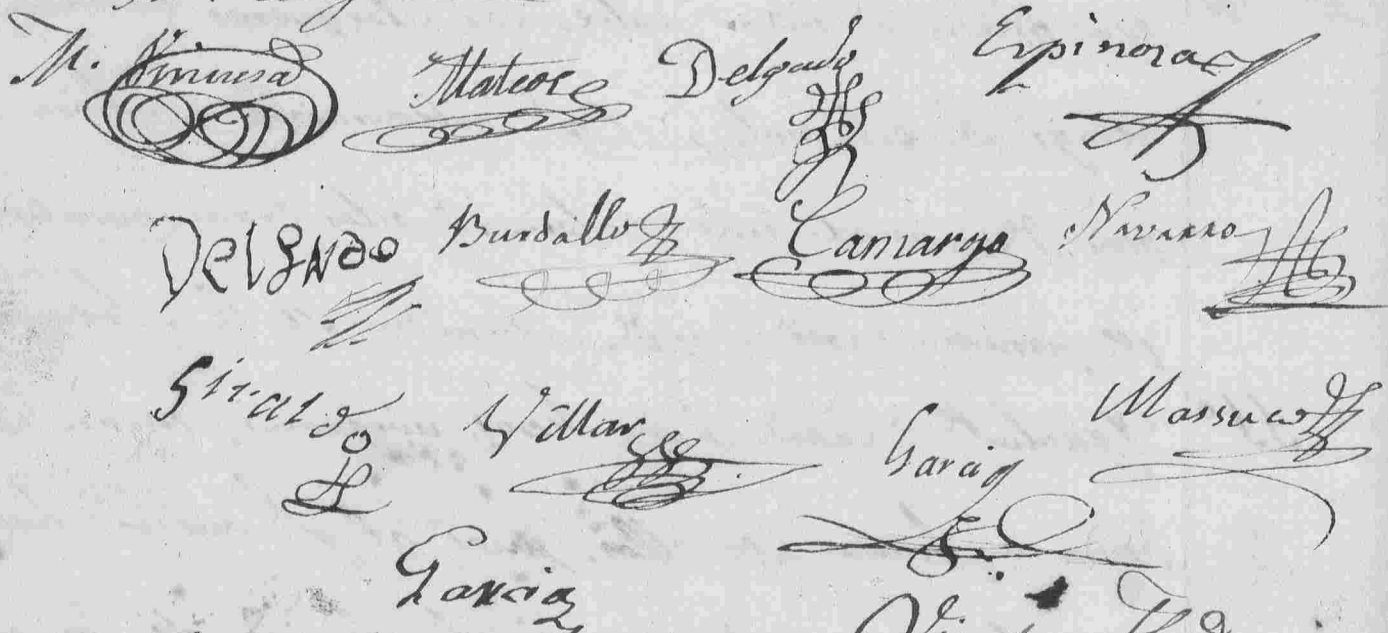 M. Mateos Delgado Espinosa
Delgado Burdallo Camargo Navarro
Giraldo Villar Garcia Massuco
Garcia